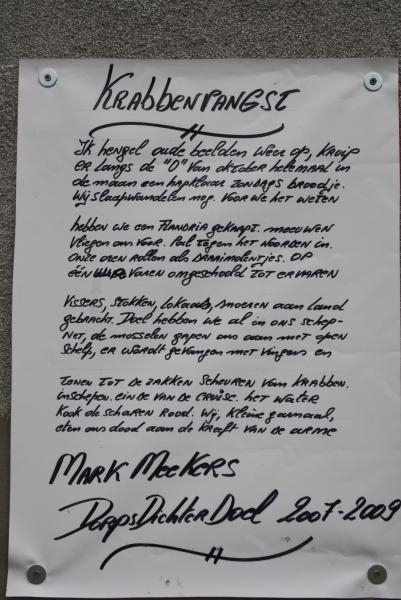 KRABBENVANGST
Ik hengel oude beelden weer op, kruip
er langs de "O" van oktober helemaal in
de maan een hapklaar zondags broodje.
Wij slaapwandelen nog. Voor we het weten
hebben we een FLANDRIA gekaapt. meeuwen
vliegen ons voor. Pal tegen het noorden in.
Onze oren rollen als draaimolentjes. OP
één varen omgeschoold TOT ERVAREN
VISSERS, STOKKEN, lokaas, snoeren aan land
gebracht. Doel hebben we al in ons schep-
NET, de mosselen gapen ons aan met open
schelp, er wordt gevangen met vingers en
TENEN TOT DE ZAKKEN SCHEUREN VAN KRABBEN.
inschepen. EINDE VAN DE CRUISE. HET WATER
kook de scharen rood. Wij, kleine garnaal,
eten ons dood aan de kreeft VAN DE ARME
MARK MEEKERS
DORPSDICHTER DOEL 2007-2009